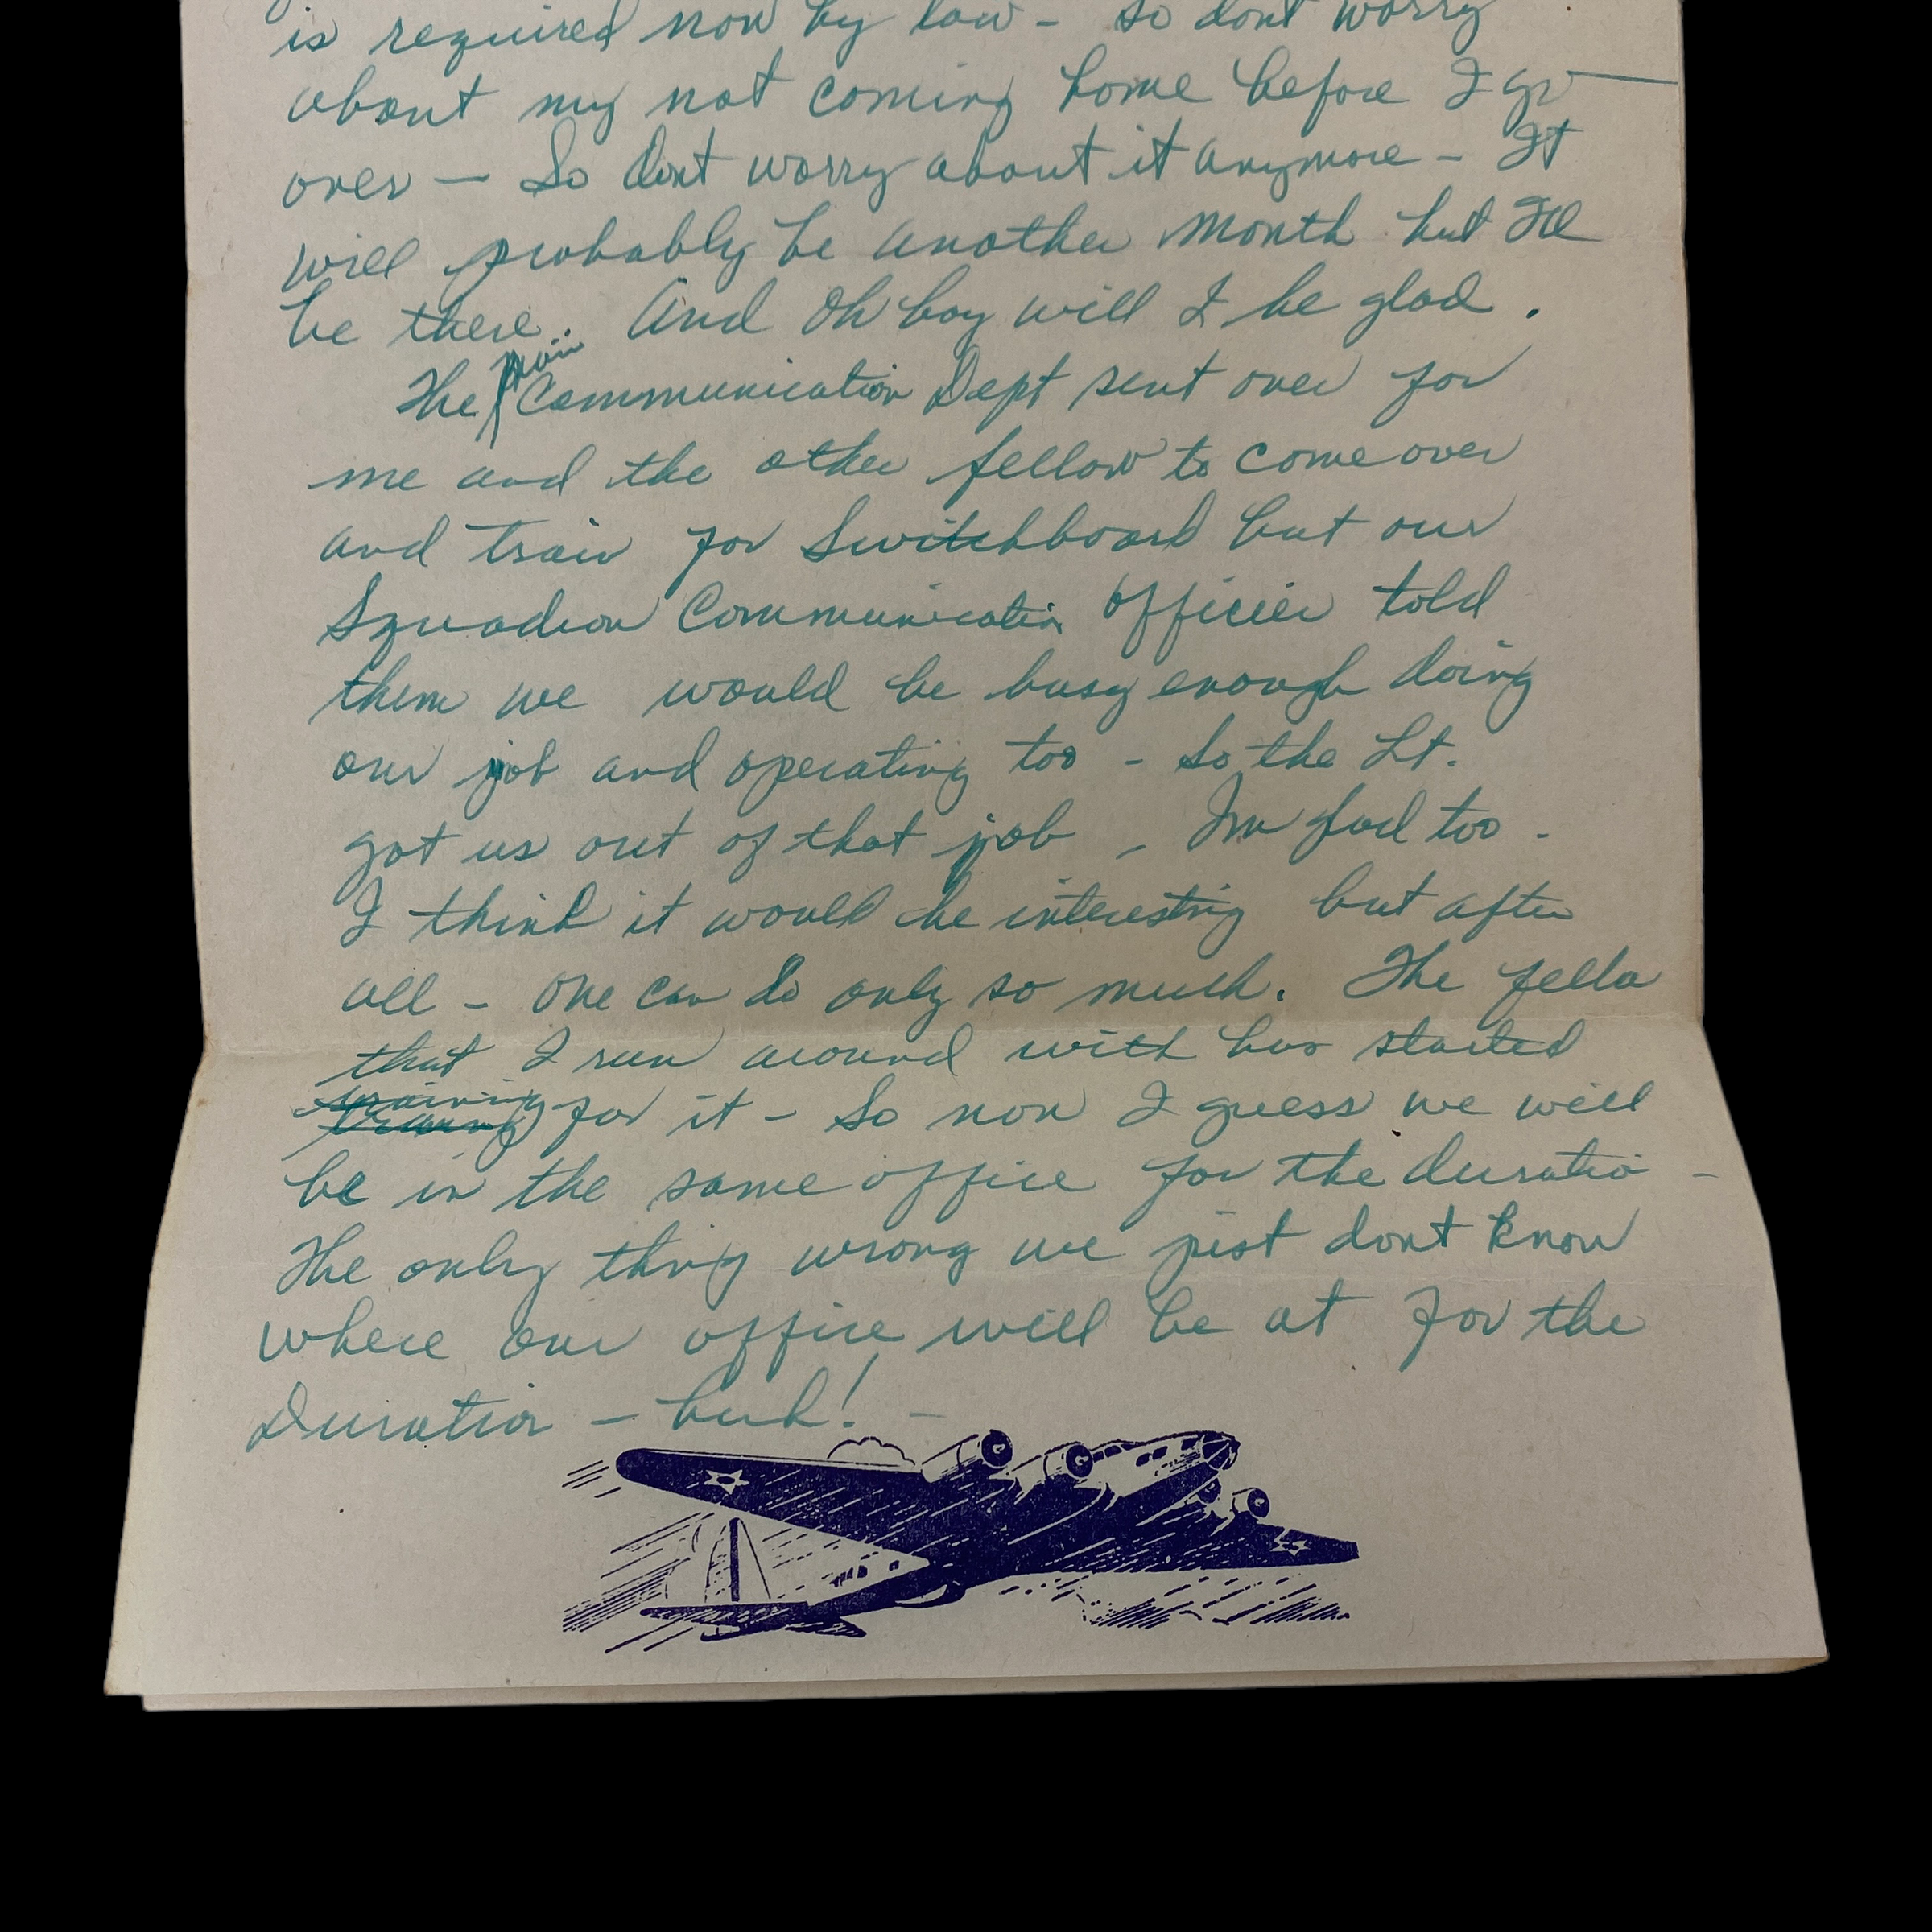 is required now by law - so dont worry
about my not coming home before I go
over - So dont worry about it anymore - It
will probably be another month but Ill
be there. And Oh boy will I be glad.
The main Communication Dept sent over for
me and the other fellow to come over
and train for Switchboard but our
Squadron Communication Officier told
them we would be busy enough doing
our job and operating too - so the Lt.
got us out of that job - Im glad too -
I think it would be interesting but after
all - one can do only so much. The fella
that I run around with has started
training for it - So now I guess we will
be in the same office for the duration -
The only thing wrong we just dont know
where our office will be at for the
Duration - huh! -